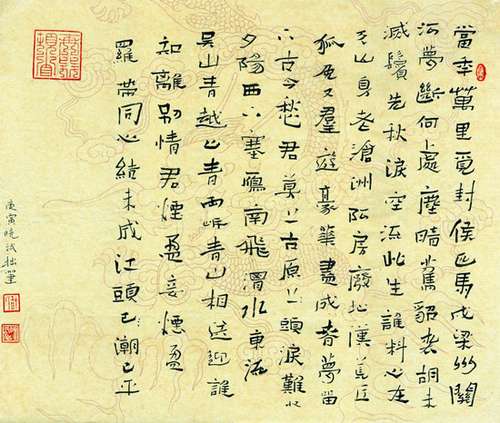 當年萬里覓封侯匹馬戍梁州關
河夢斷何處塵暗舊貂裘胡未
滅鬢先秋淚空流此生誰料心在
天山身老滄洲阿房廢址漢荒丘
狐兔又羣遊豪華盡成春夢留
下古今愁君莫上古原上頭淚難收
夕陽西下塞鴈南飛渭水東流
吳山青越山青兩岸青山相送迎誰
知離別情君煙盈妾煙盈
羅帶同心結未成江頭已潮已平
庚寅曉拙筆